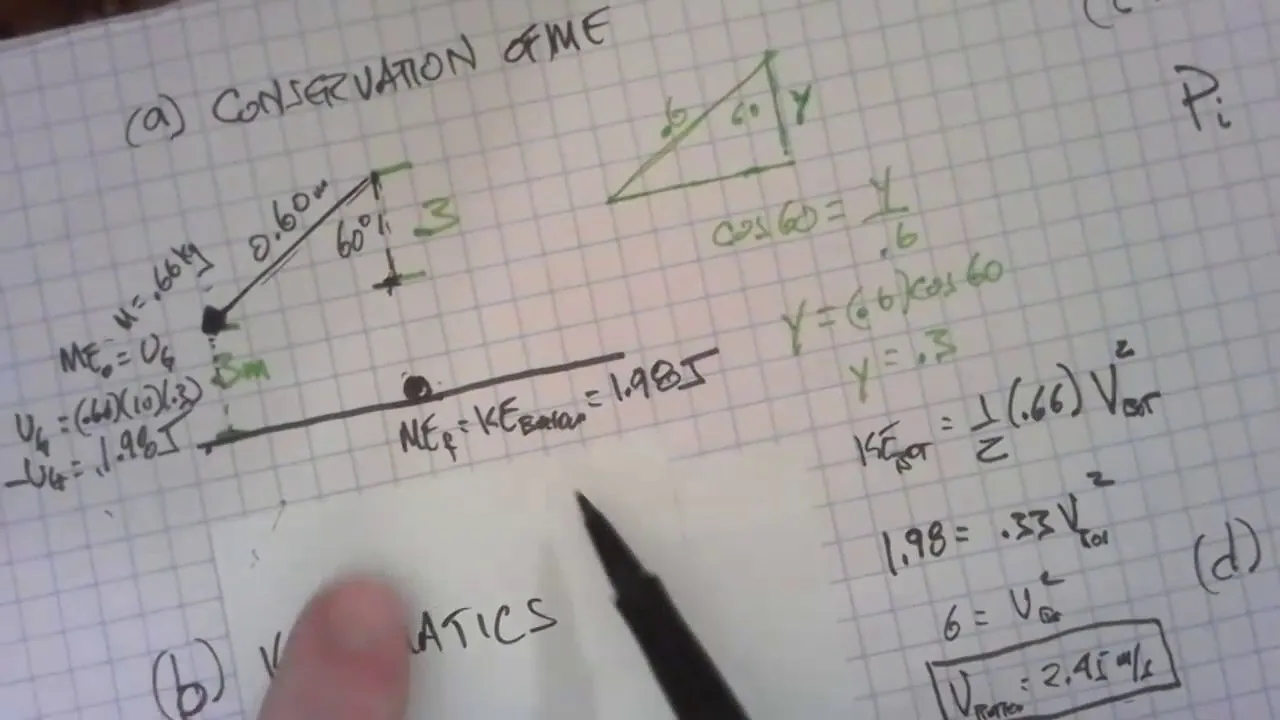 (a) CONSERVATION OF ME
0.60m
60°
.3
M=.66kg
ME₀=UG
.3m
UG=(.66)(10)(.3)
UG=1.98J
MEF=KEBOTTOM=1.98J
.6
60
Y
cos60=Y/.6
Y=(.6)cos60
Y=.3
KEBOT=1/2(.66)VBOT²
1.98=.33VBOT²
6=VBOT²
VBOTTOM=2.45m/s
(b) K
ATICS
Pi
(d)